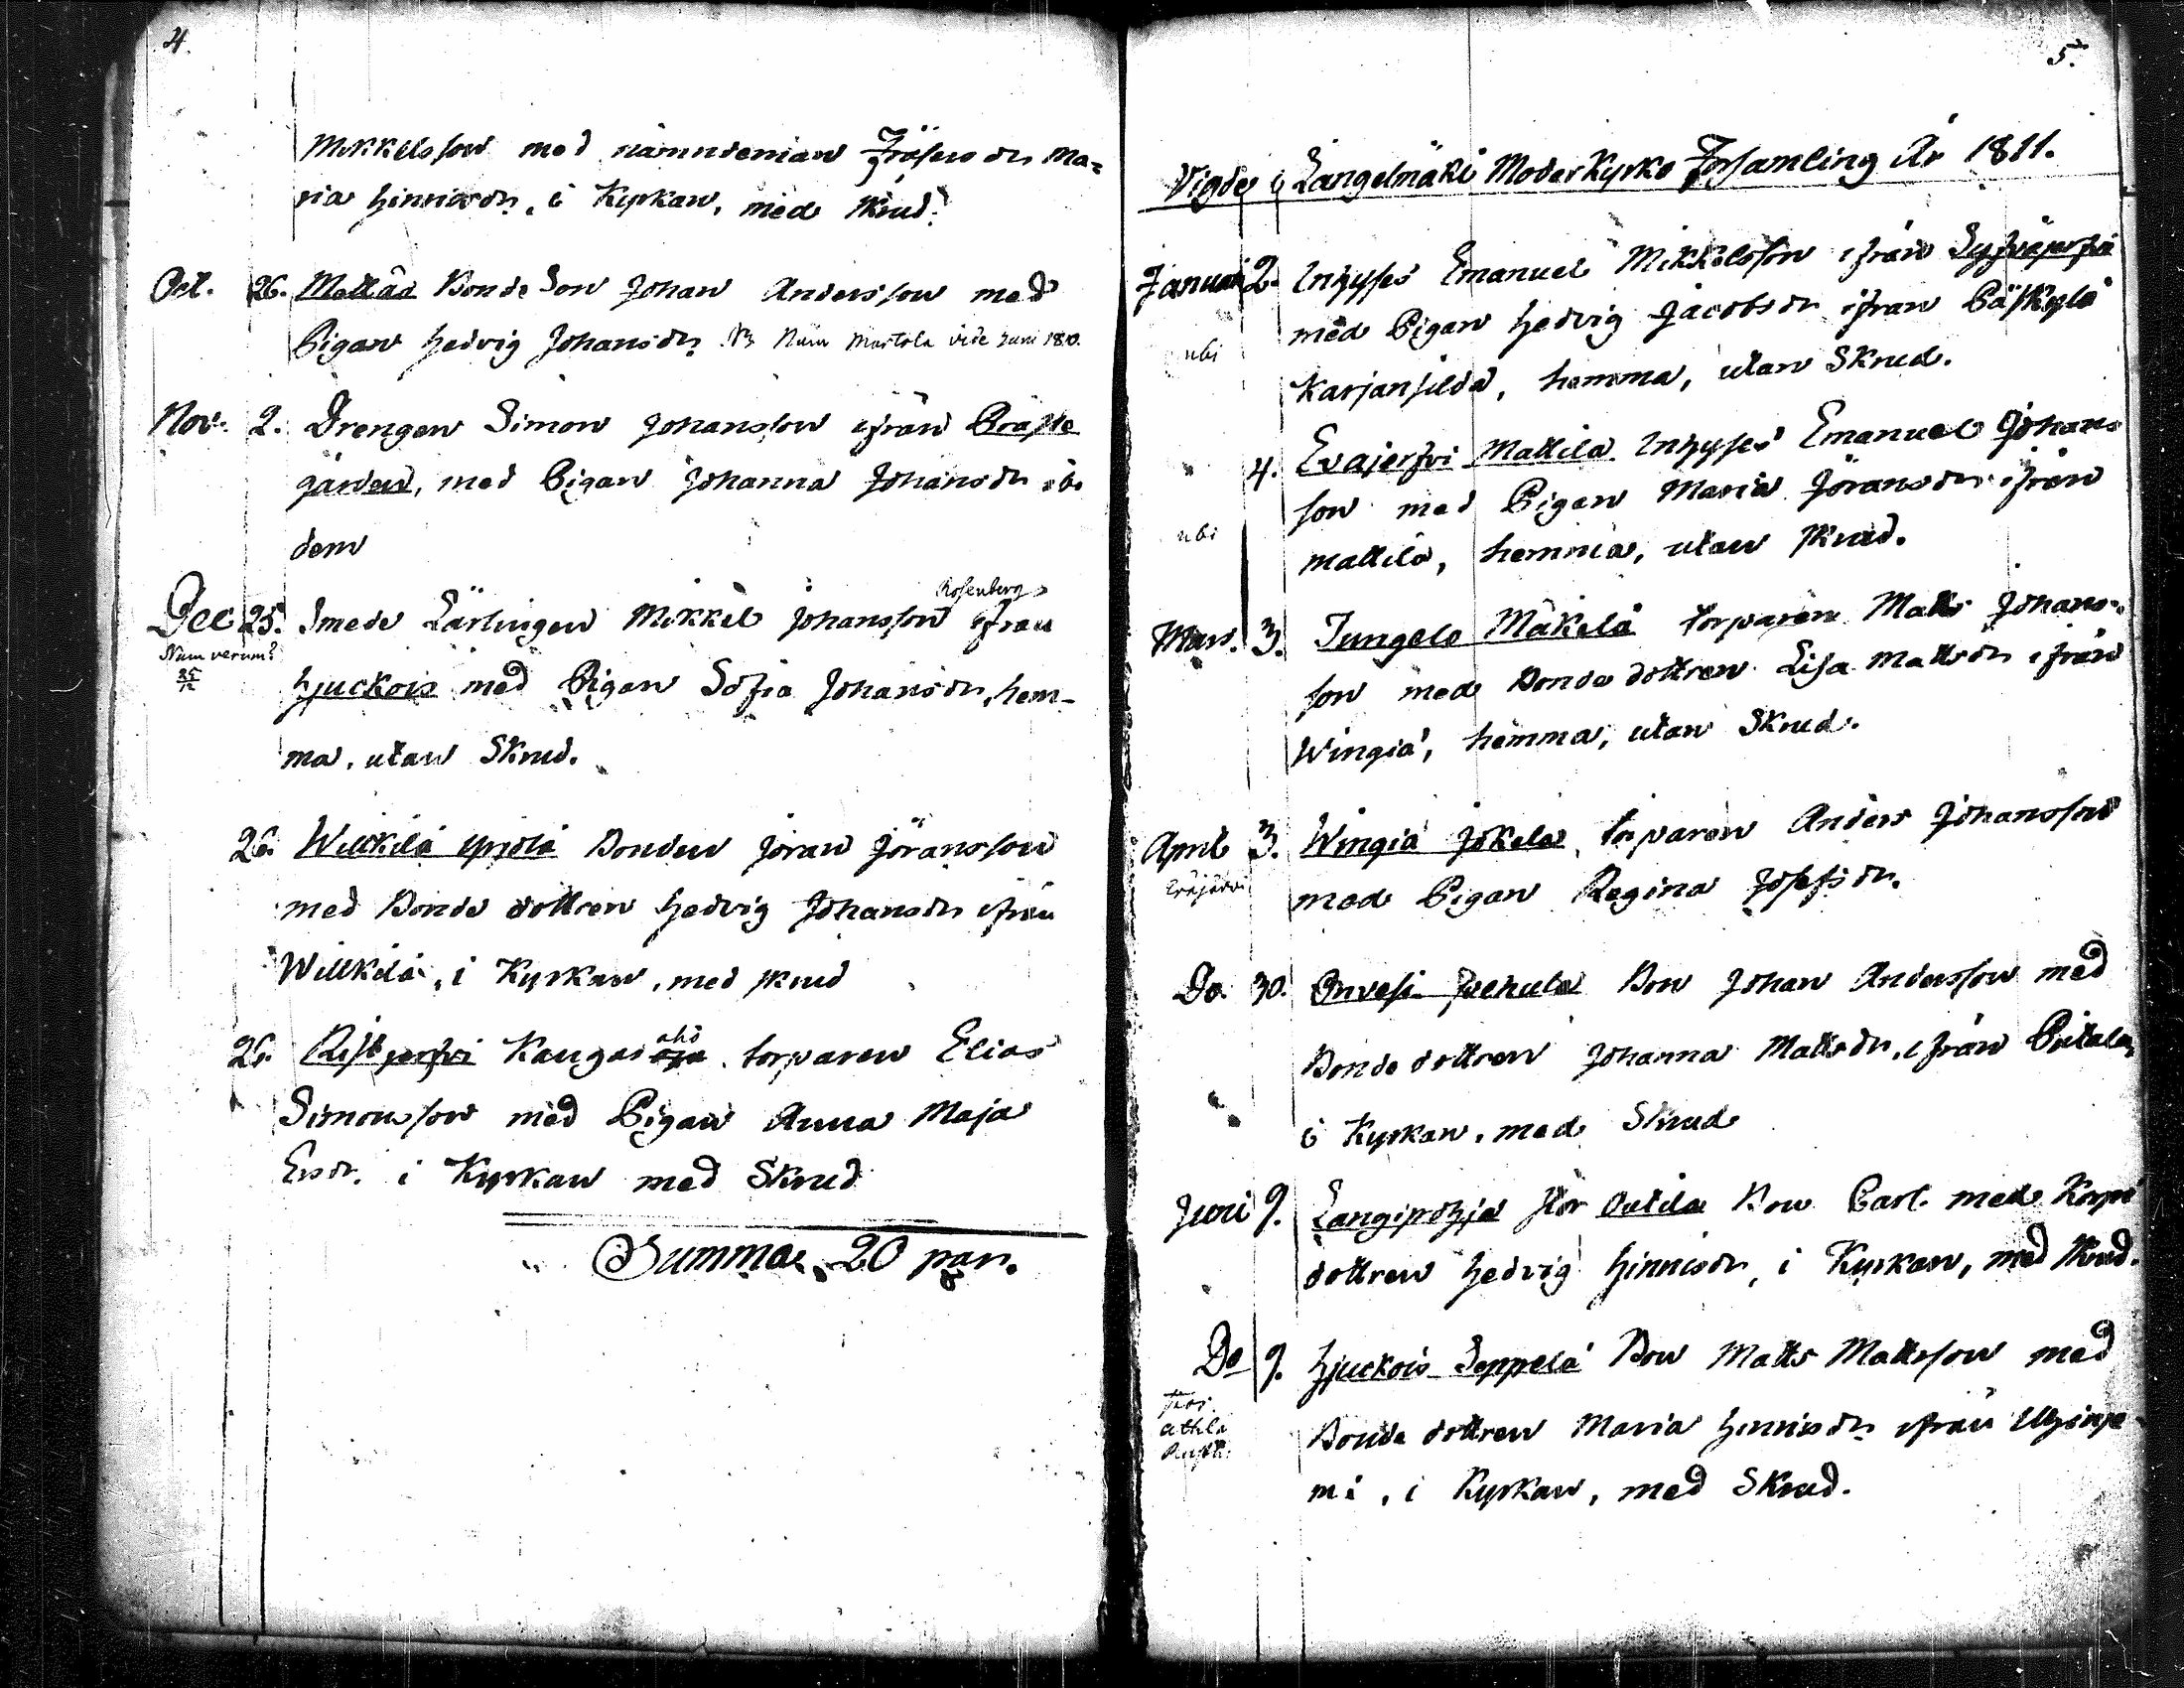 4.
Mikkelsson med nämndeman Frösens dr Ma=
ria Hinricsdr, i Kyrkan, med skrud.
Oct. 26. Mattas Bonde Son Johan Andersson med
Pigan Hedvig Johansdr. NB Num Martola vide Juni 1810.
Nov. 2. Drengen Simon Johansson ifrån Präste
gården, med Pigan Johanna Johansdr ibi
dem
Rosenberg
Dec 25. Smeds Lärlingen Mikkel Johansson ifrån
Num verum?
25/12
Hjuckois med Pigan Sofia Johansdr, hem-
ma, utan Skrud.
26. Willkilä Yrjölä Bonden Jöran Jöransson
med Bonde dottren Hedvig Johansdr ifrån
Willkilä, i Kyrkan, med skrud
aho
26. Ristjerfvi Kangas torparen Elias
Simonsson med Pigan Anna Maja
Ersdr. i Kyrkan med Skrud
Summa 20 par.
5.
Vigde i Längelmäki Moderkyrko Församling År 1811.
Januari 2. Inhyses Emanuel Mikkelsson ifrån
med Pigan Hedvig Jacobsdr ifrån Päskylä
ubi
Karjansilda, hemma, utan Skrud.
4. Erajerfvi Mattila Inhyses Emanuel Johans
son med Pigan Maria Jöransdr ifrån
ubi
Mattila, hemma, utan skrud.
Mars. 3. Jungelo Mäkelä torparen Matts Johans-
son med Bonde dottren Lisa Mattsdr ifrån
Wingiä, hemma, utan Skrud.
April 3. Wingiä Jokela, torparen Anders Johansson
Eräjärvi
med Pigan Regina Josefsdr.
Do. 30. Onvesi Juehula Bon Johan Andersson med
Bonde dottren Johanna Mattsdr, ifrån
i Kyrkan, med Skrud
Juni 9. Längipohja stor Outila Bon Carl med Korpr
dottren Hedvig Hinricsdr, i Kyrkan, med skrud.
Do 9. Hjuckois Seppelä Bon Matts Mattsson med
Bonde dottren Maria Hinricsdr ifrån
mi, i Kyrkan, med Skrud.